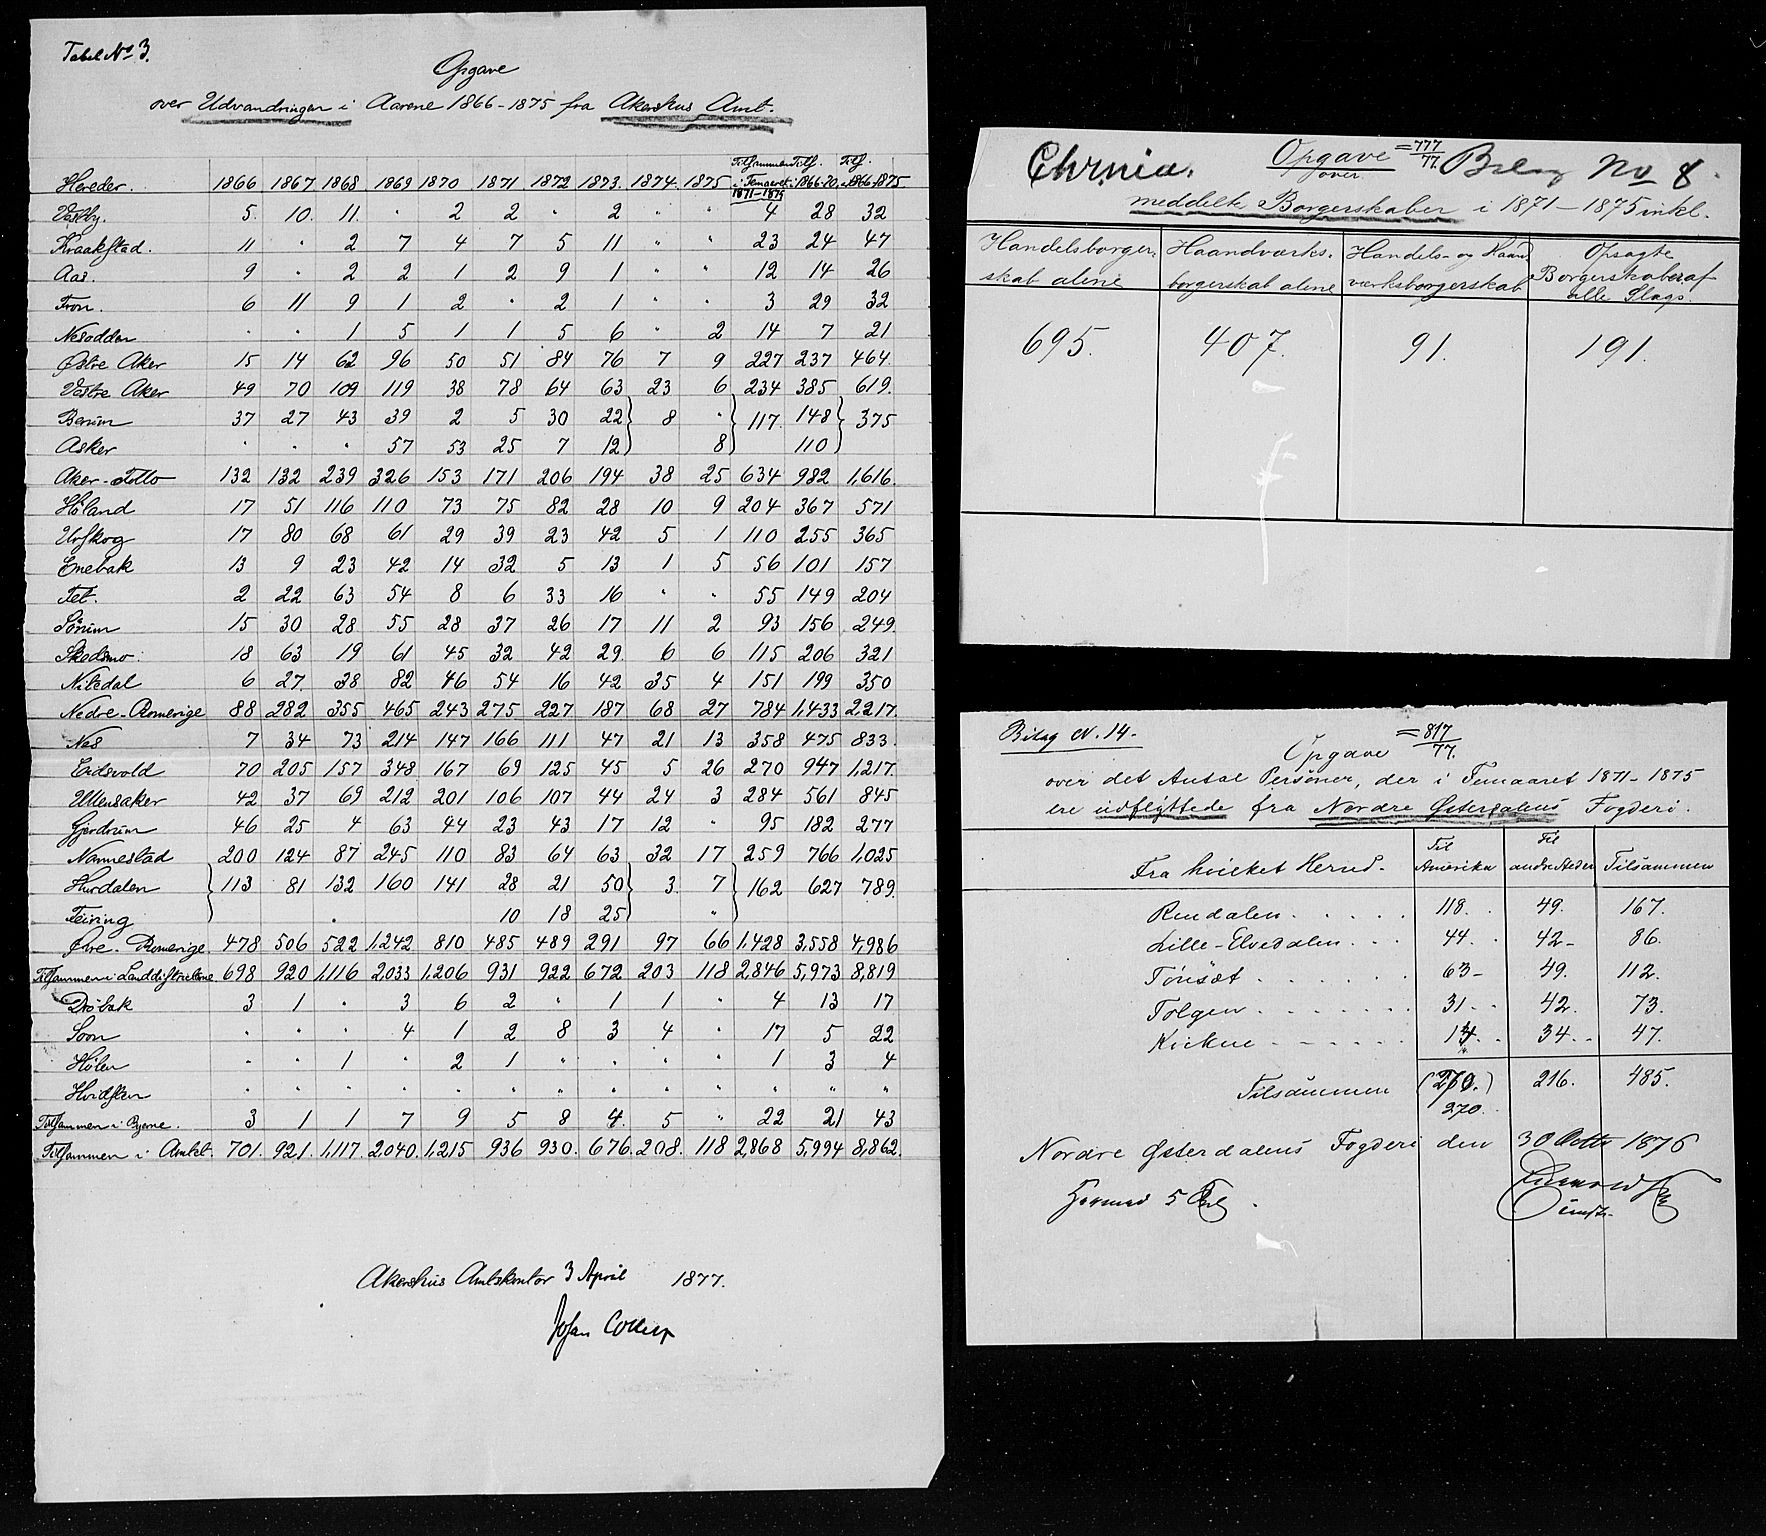 Tabel No 3.
Opgave
over Udvandringen i Aarene 1866-1875 fra Akershus Amt.
Hereder. 1866 1867 1868 1869 1870 1871 1872 1873. 1874. 1875 Tilsammen i Femaaret 1871-1875 Tils. i 1866-70. Tils. 1866-1875
Vestby. 5. 10. 11. " 2 2 " 2 " " 4 28 32
Kraakstad. 11 " 2 7 4 7 5 11 " " 23 24 47
Aas. 9 " 2 2 1 2 9 1 " " 12 14 26
Fron. 6 11 9 1 2 " 2 1 " " 3 29 32
Nesodden " " 1 5 1 1 5 6 " 2 14 7 21
Østre Aker 15 14 62 96 50 51 84 76 7 9 227 237 464.
Vestre Aker 49 70 109 119 38 78 64 63 23 6 234 385 619.
Berum 37 27 43 39 2 5 30 22 8 " 117. 148 375
Asker " " " 57 53 25 7 12 8 110
Aker-Follo 132 132 239 326 153 171 206 194 38 25 634 982 1,616.
Höland 17 51 116 110 73 75 82 28 10 9 204 367 571
Urskog 17 80 68 61 29 39 23 42 5 1 110 255 365
Enebak 13 9 23 42 14 32 5 13 1 5 56 101 157
Fet. 2 22 63 54 8 6 33 16 " " 55 149 204
Sörum 15 30 28 55 28 37 26 17 11 2 93 156 249.
Skedsmo. 18 63 19 61 45 32 42 29. 6 6 115 206 321
Nitedal 6 27. 38 82 46 54 16 42 35 4 151 199 350
Nedre-Romerige 88 282 355 465 243 275 227 187 68 27 784 1,433 2,217.
Nes 7 34 73 214 147 166 111 47 21 13 358 475 833
Eidsvold 70 205 157 348 167 69 125 45 5 26 270 947 1,217.
Ullensaker 42 37 69 212 201 106 107 44 24 3 284 561 845
Gjerdrum 46 25 4 63 44 23 43 17 12 " 95 182 277
Nannestad 200 124 87 245 110 83 64 63 32 17 259 766 1,025
Hurdalen 113 81 132 160 141 28 21 50 3. 7 162 627 789.
Feiring 10 18 25 "
Øvre-Romerige 478 506 522 1,242 810 485 489 291 97 66 1,428 3,558 4,986
Tilsammen i Landdistrikterne 698 920 1,116 2,033 1,206 931 922 672 203 118 2,846 5,973 8,819
Dröbak 3 1 " 3 6 2 " 1 1 " 4 13 17
Soon " " " 4 1 2 8 3 4 " 17 5 22
Hölen " " 1 " 2 1 " " " " 1 3 4
Hvidsten " " " " " " " " " " " " "
Tilsammen i Byerne. 3 1 1 7 9 5 8 4. 5 " 22 21 43
Tilsammen i Amtet. 701. 921. 1,117. 2,040. 1,215 936 930. 676. 208. 118 2,868 5,994 8,862.
Akershus Amtskontor 3 April 1877.
Johan Collett
Chrnia. Opgave = 777/77. Bilag No 8.
over
meddelte Borgerskaber i 1871-1875 inkl.
Handelsborgerskab alene Haandværks-borgerskab alene Handels- og Haandværksborgerskab Opsagte Borgerskaber af alle Slags.
695. 407. 91. 191.
Bilag N. 14.
Opgave = 817/77.
over det Antal Personer, der i Femaaret 1871-1875
ere udflyttede fra Nordre Østerdalens Fogderi.
Fra hvilket Herred. Til Amerika Til andre Steder Tilsammen
Rendalen 118. 49. 167.
Lille-Elvedalen 44. 42- 86.
Tönset 63- 49. 112.
Tolgen 31. 42. 73.
Kvikne 14. 34. 47.
Tilsammen (270.) 216. 485.
270.
Nordre Østerdalens Fogderi den 30 Octbr 1876